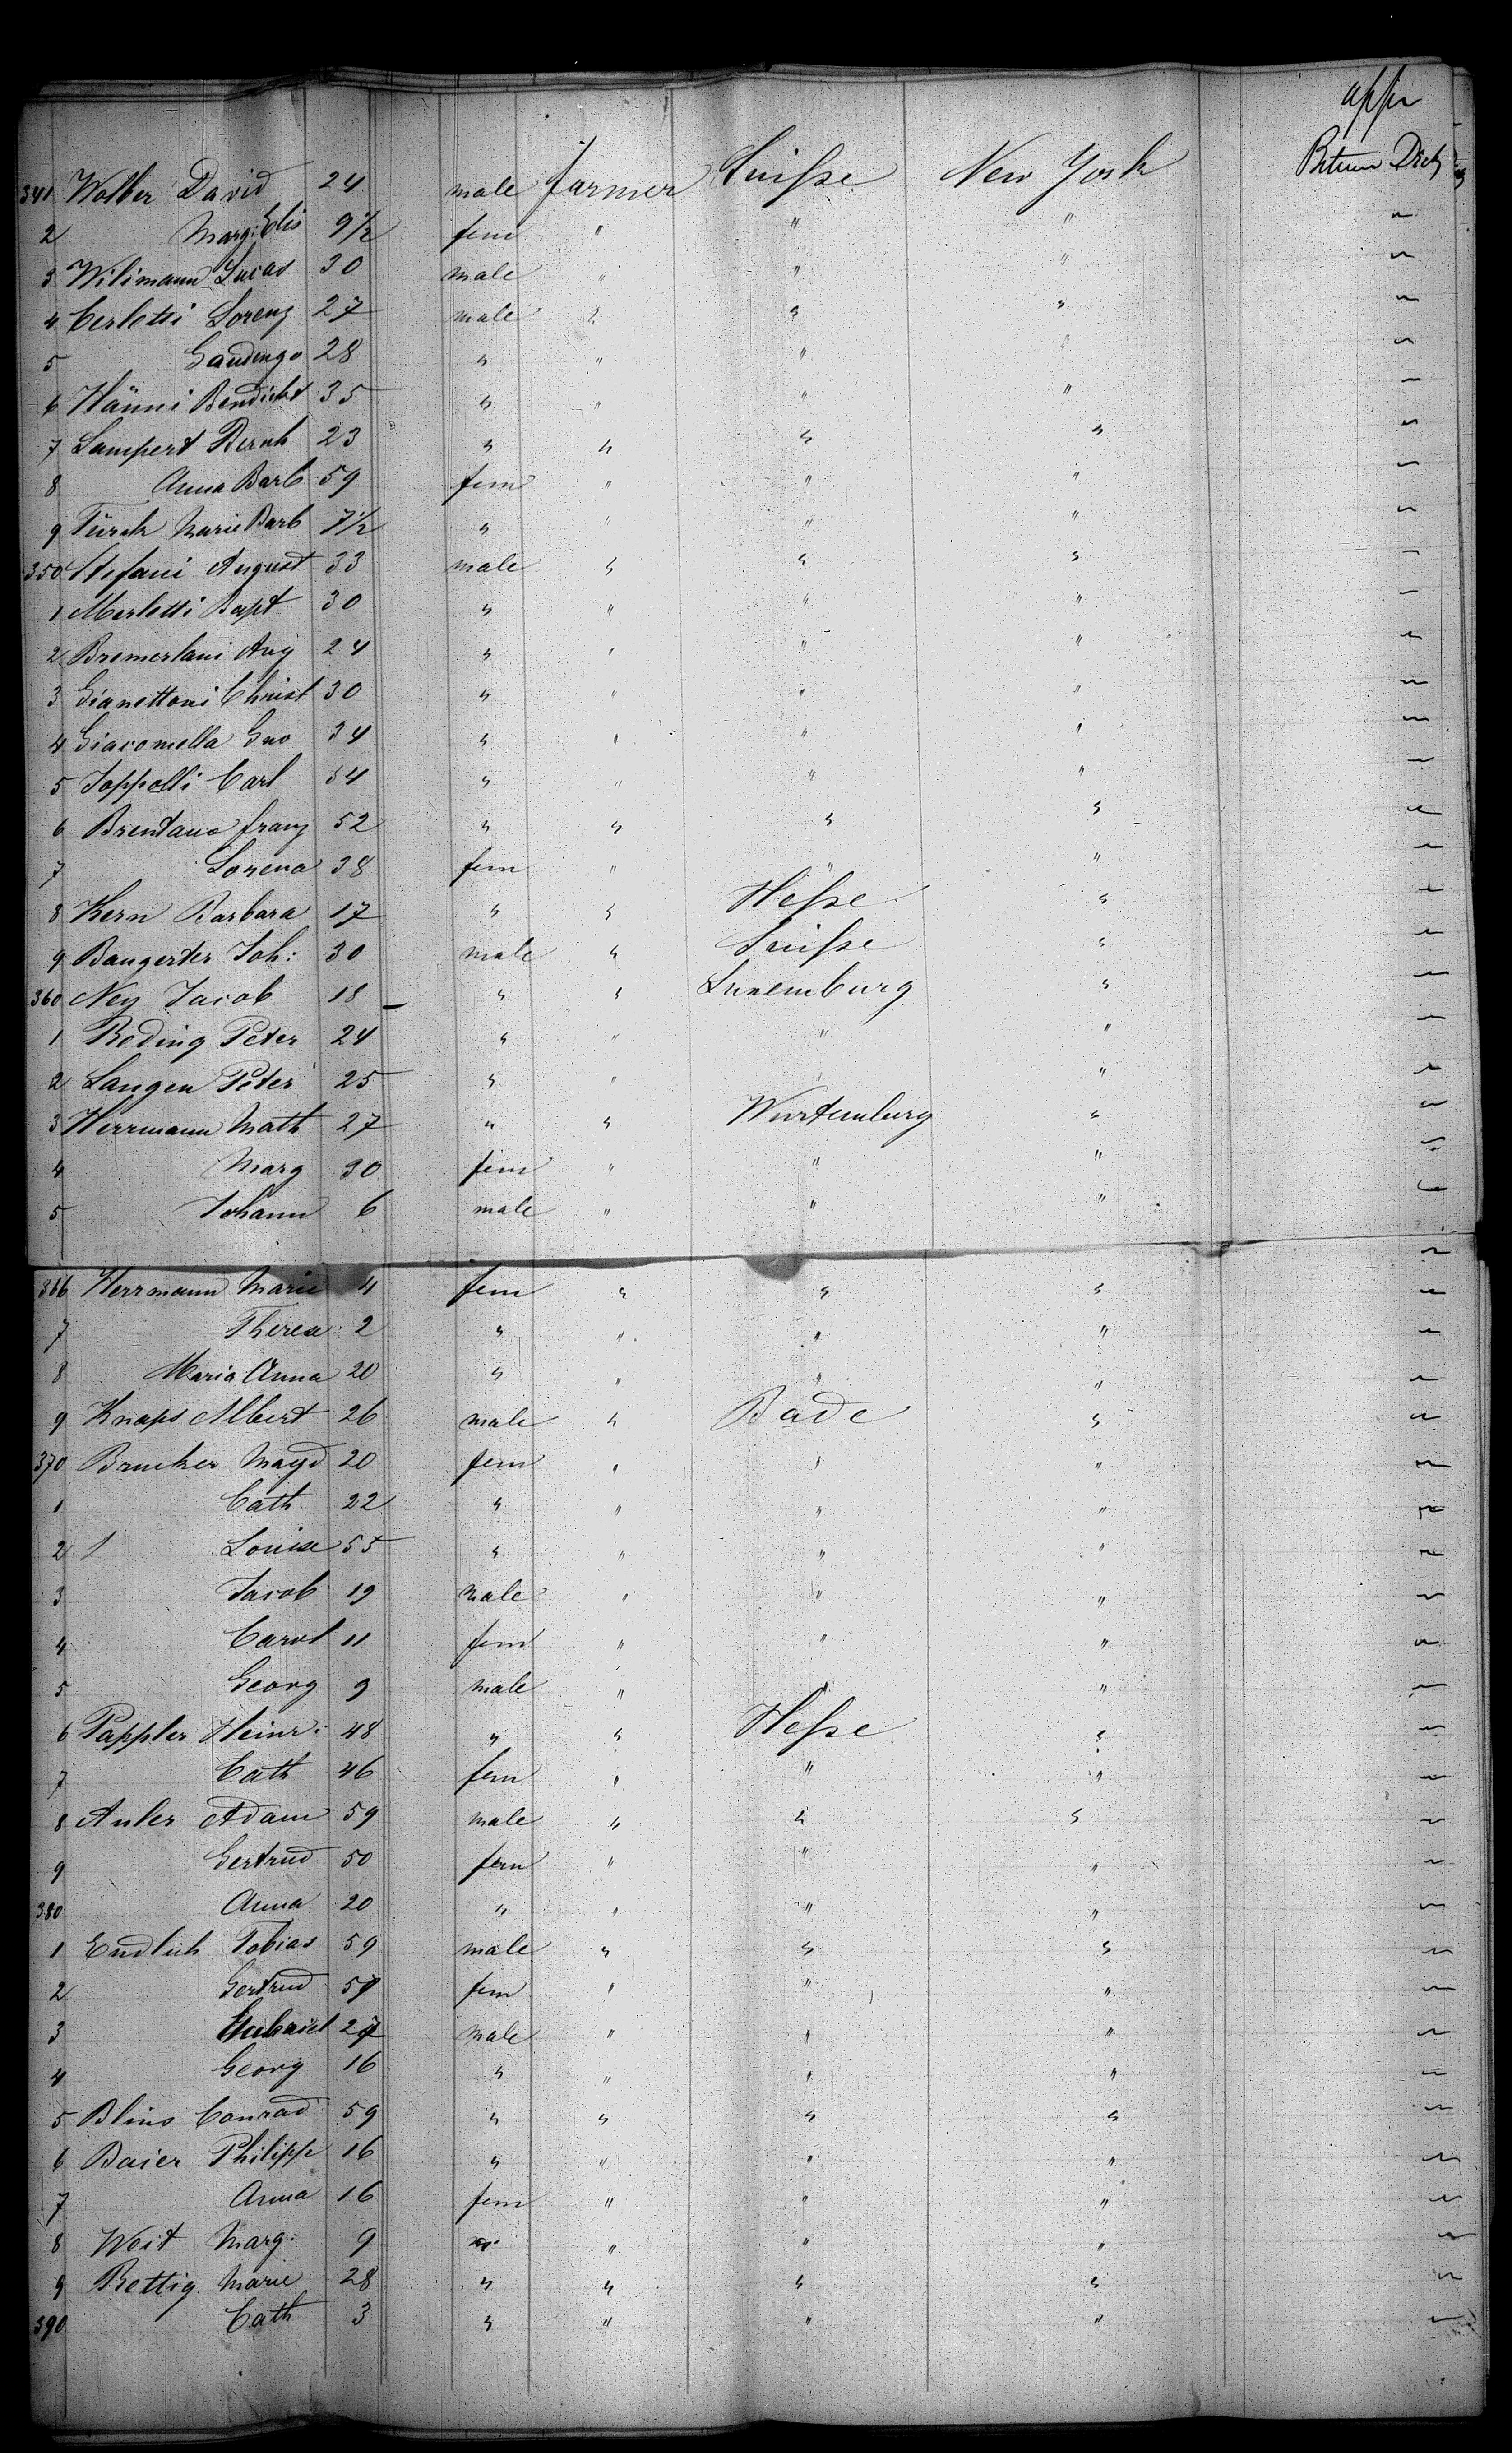 appr
341 Wolber David 24 male farmer Suisse New York Betwen Dick
2 Marg: Elis 9 1/2 fem " " "
3 Wilimann Lucas 30 male " " "
4 Cerletti Lorenz 27 male " " "
5 Gaudenzo 28 " " "
6 Hänni Bendicht 35 " " " "
7 Lampert Bernh 23 " " " "
8 Anna Barb 59 fem " " "
9 Türck Marie Barb 7 1/2 " " " "
350 Stefani August 33 male " " "
1 Merletti Bapt 30 " " " "
2 Bremerlani Aug 24 " " " "
3 Gianettoni Christ 30 " " " "
4 Giacomella Gno 34 " " " "
5 Joppolli Carl 34 " " " "
6 Brentano franz 52 " " " "
7 Lorena 38 fem " " "
8 Kern Barbara 17 " " Hesse "
9 Bangerter Joh: 30 male " Suisse "
360 Ney Jacob 18 " " Luxemburg "
1 Reding Peter 24 " " " "
2 Langen Peter 25 " " "
3 Herrmann Math 27 " " Wurtemburg "
4 Marg 30 fem " " "
5 Johann 6 male " " "
366 Herrmann Marie 4 fem " " "
7 Therese 2 " " " "
8 Maria Anna 20 " " " "
9 Knaps Albert 26 male " Bade "
370 Brucker Magd 20 fem " " "
1 Cath 22 " " " "
2 Louise 55 " " " "
3 Jacob 19 male " " "
4 Carol 11 fem " " "
5 Georg 9 male " " "
6 Pappler Heinr: 48 " " Hesse "
7 Cath 46 fem " " "
8 Anler Adam 59 male " " "
9 Gertrud 50 fem " " "
380 Anna 20 " " " "
1 Endlich Tobias 59 male " " "
2 Gertrud 57 fem " " "
3 27 male " " "
4 Georg 16 " " " "
5 Blins Conrad 59 " " " "
6 Baier Philipp 16 " " " "
7 Anna 16 fem " " "
8 Weit Marg: 9 " " " "
9 Rettig Marie 28 " " " "
390 Cath 3 " " " "